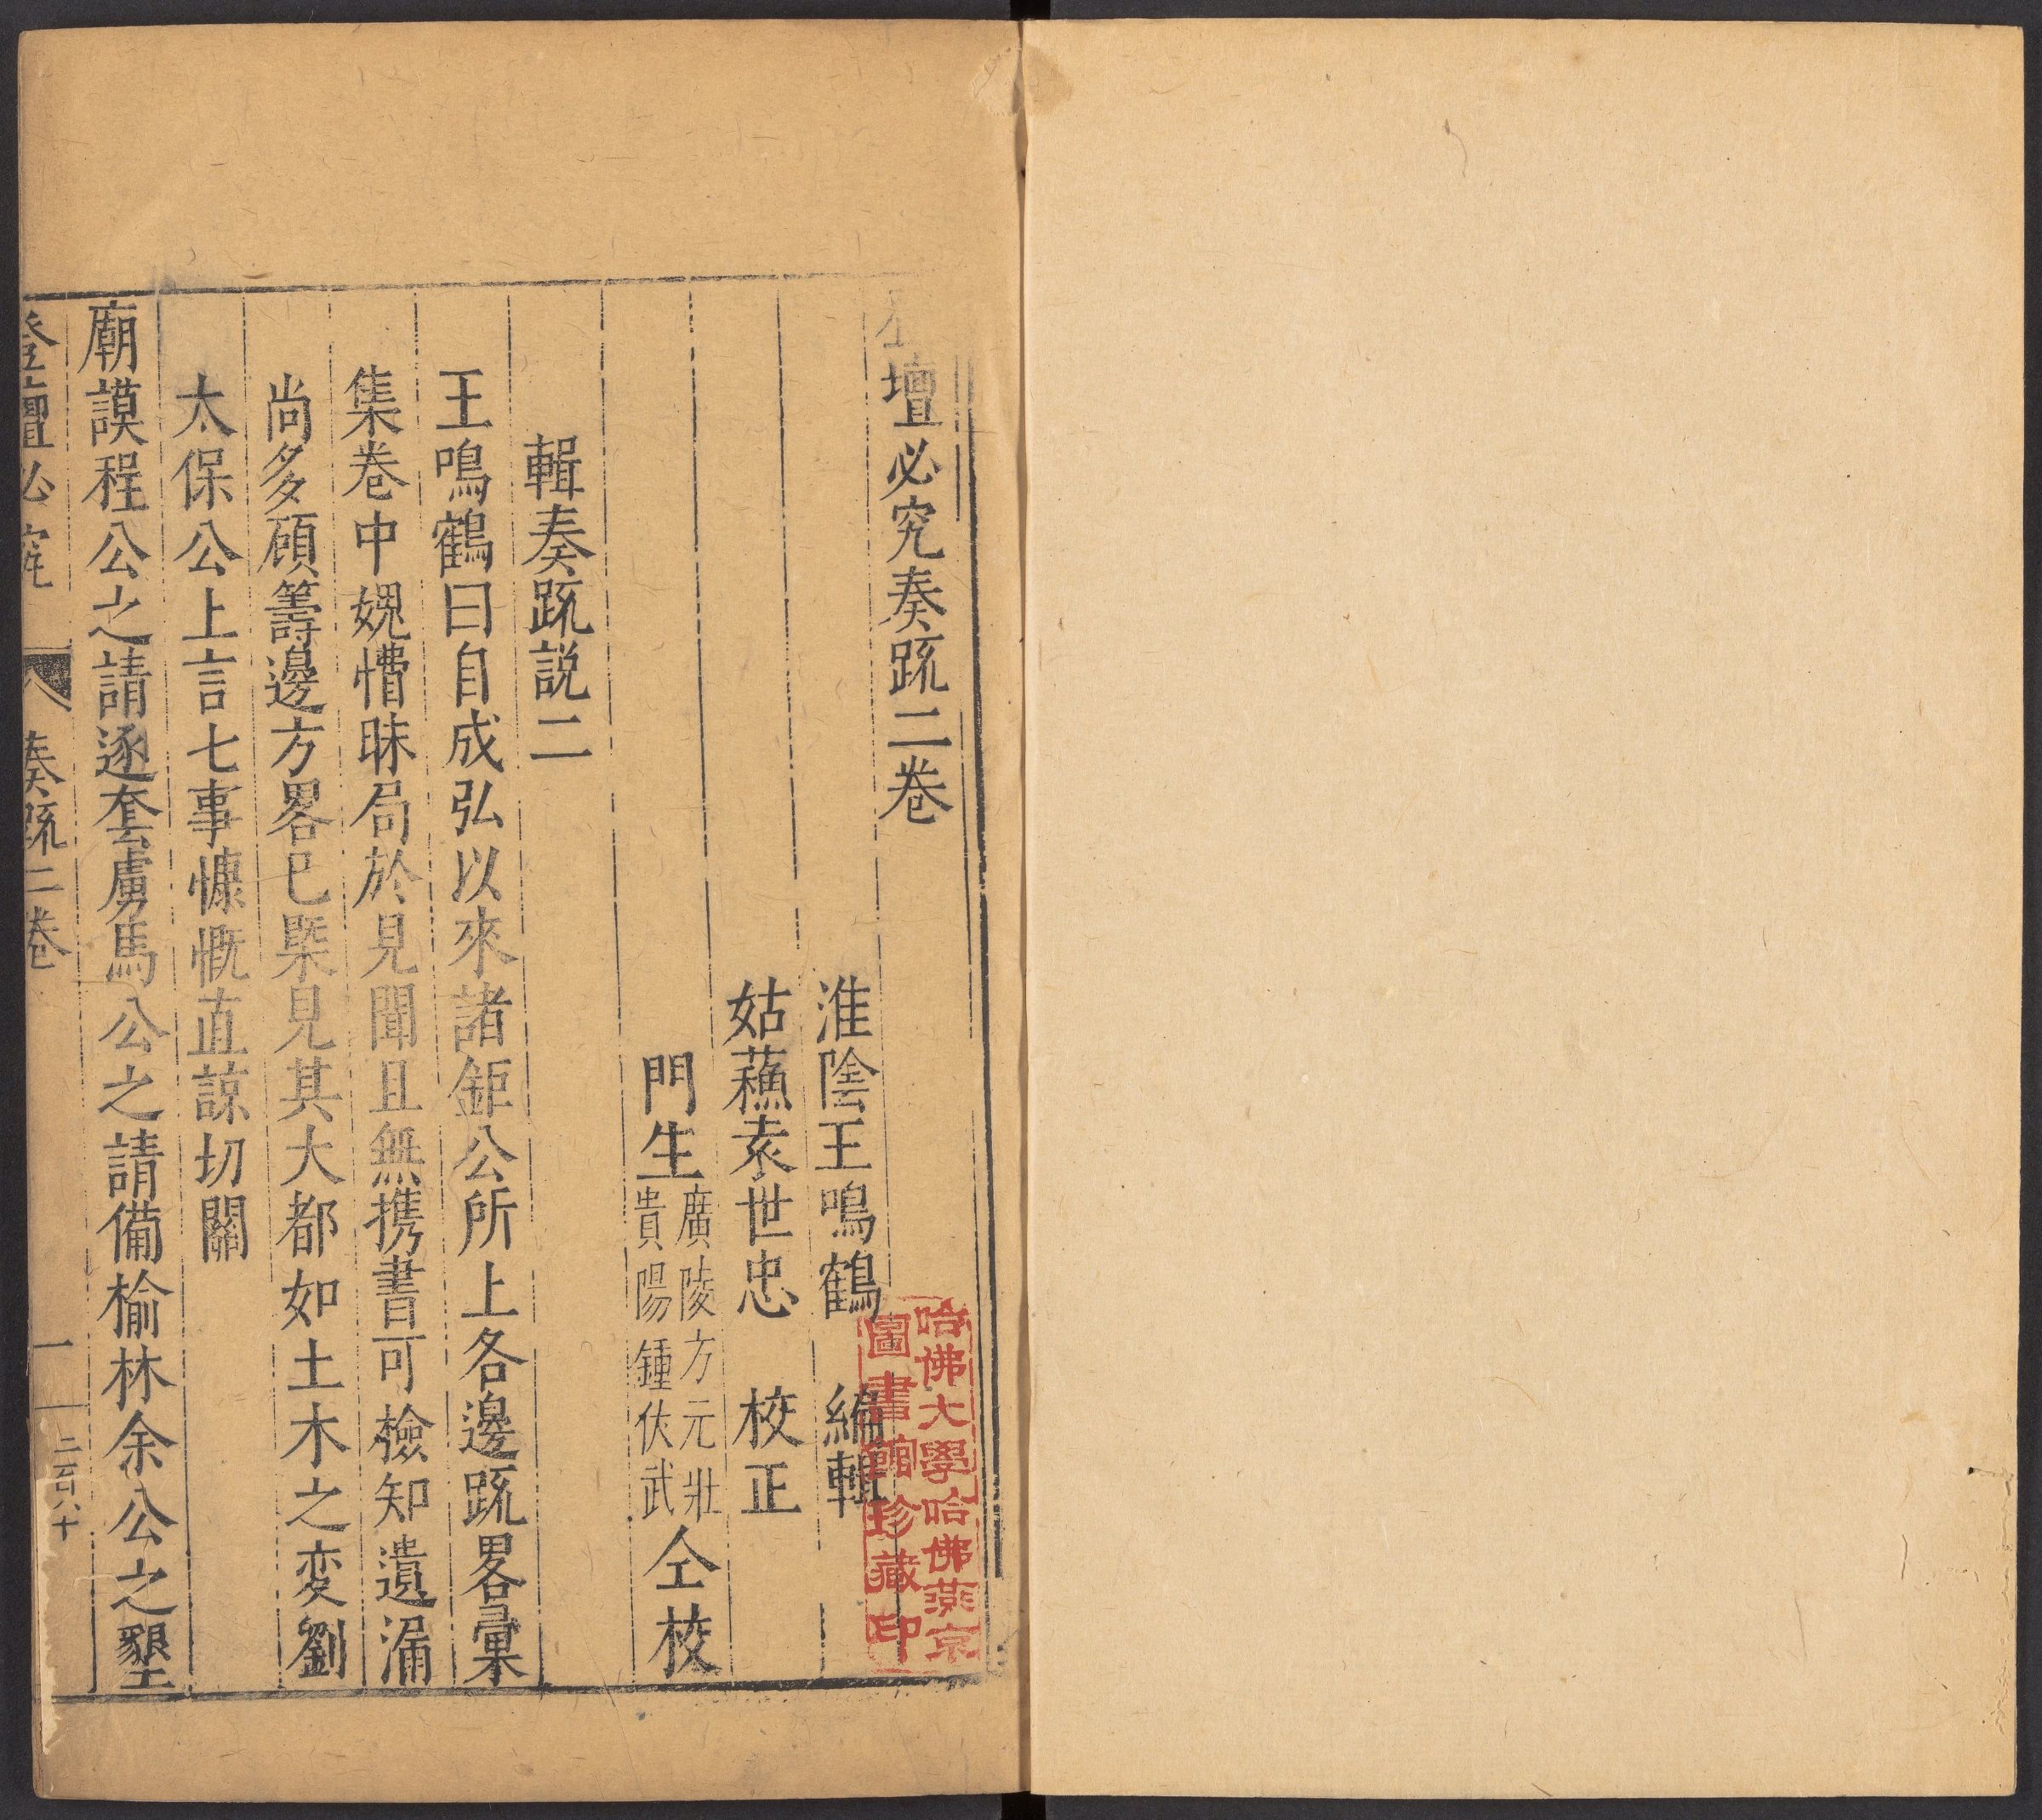 登壇必究奏疏二卷
淮陰王鳴鶴 編輯
姑蘇袁世忠 校正
門生廣陵方元壯貴陽鍾伏武仝校
輯奏疏説二
王鳴鶴曰自成弘以來諸鉅公所上各邊疏畧彙
集卷中媿懵昧局於見聞且無携書可檢知遺漏
尚多頋籌邊方畧已槩見其大都如土木之変劉
太保公上言七事慷慨直諒切關
廟謨程公之請逐套虜馬公之請備榆林余公之墾
登壇必究 奏疏二卷 一 二百八十
哈佛大學哈佛燕京
圖書館珍藏印